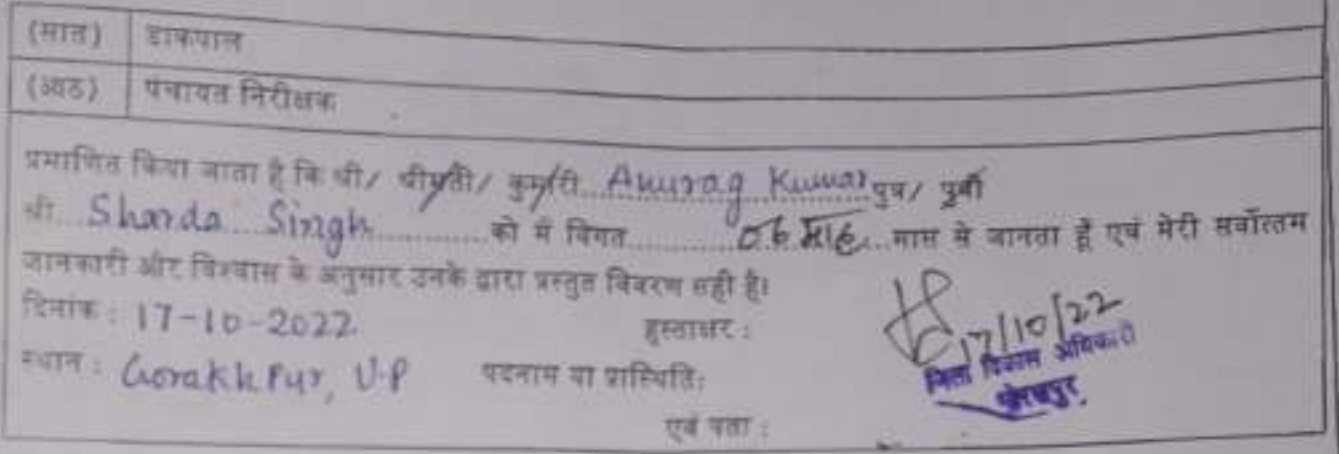 (सात) डाकपाल
(आठ) पंचायत निरीक्षक
प्रमाणित किया जाता है कि श्री/ श्रीमती/ कुमारी...Anurag Kumar पुत्र/ पुत्री
श्री...Sharda Singh...........को मै विगत...........06 माह...मास से जानता हूँ एवं मेरी सर्वोत्तम
जानकारी और विश्वास के अनुसार उनके द्वारा प्रस्तुत विवरण सही है।
दिनांक : 17-10-2022 हस्ताक्षर :
17/10/22
स्थान : Gorakhpur, U.P पदनाम या प्रास्थिति:
जिला विकास अधिकारी
गोरखपुर
एवं पता :